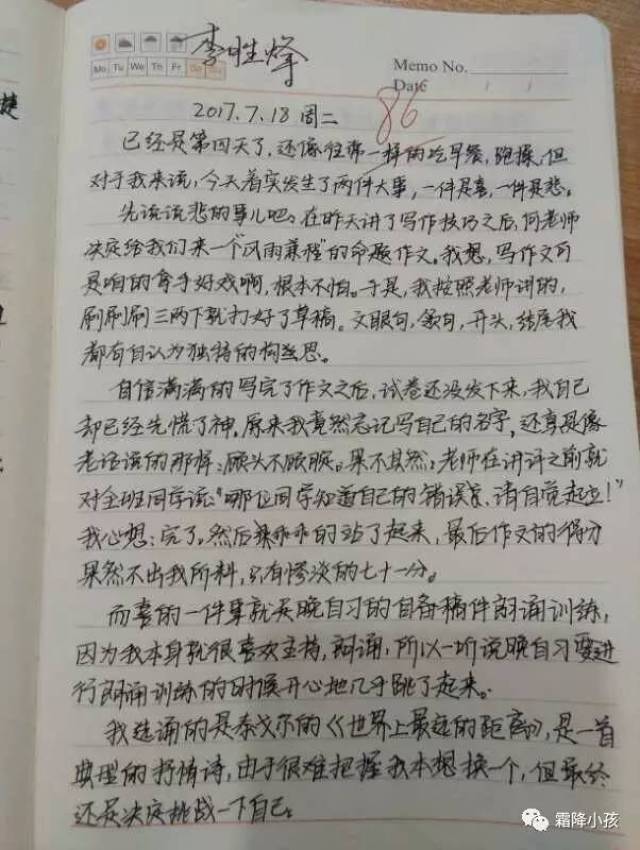 李胜烽
Memo No.
Mo Tu We Th Fr Sa Su
Date / /
捷
2017.7.18 周二
86
已经是第四天了,还像往常一样的吃早餐,跑操,但
对于我来说,今天着实发生了两件大事,一件是喜,一件是悲。
先说说悲的事儿吧。在昨天讲了写作技巧之后,何老师
决定给我们来一个"风雨兼程"的命题作文。我想,写作文可
是咱的拿手好戏啊,根本不怕。于是,我按照老师讲的,
刷刷刷三两下就打好了草稿。文眼句,领句,开头,结尾我
都有自认为独特的构思。
自信满满的写完了作文之后,试卷还没发下来,我自己
却已经先慌了神,原来我竟然忘记写自己的名字,还真是像
老话说的那样:顾头不顾腚。果不其然,老师在讲评之前就
对全班同学说:"哪位同学知道自己的错误,请自觉起立!"
我心想:完了。然后乖乖的站了起来,最后作文的得分
果然不出我所料,只有惨淡的七十一分。
而喜的一件事就是晚自习的自备稿件朗诵训练,
因为我本身就很喜欢主持,朗诵,所以一听说晚自习要进
行朗诵训练的时候开心地几乎跳了起来。
我选诵的是泰戈尔的《世界上最远的距离》,是一首
典型的抒情诗,由于很难把握我本想换一个,但最终
还是决定挑战一下自己。
霜降小孩